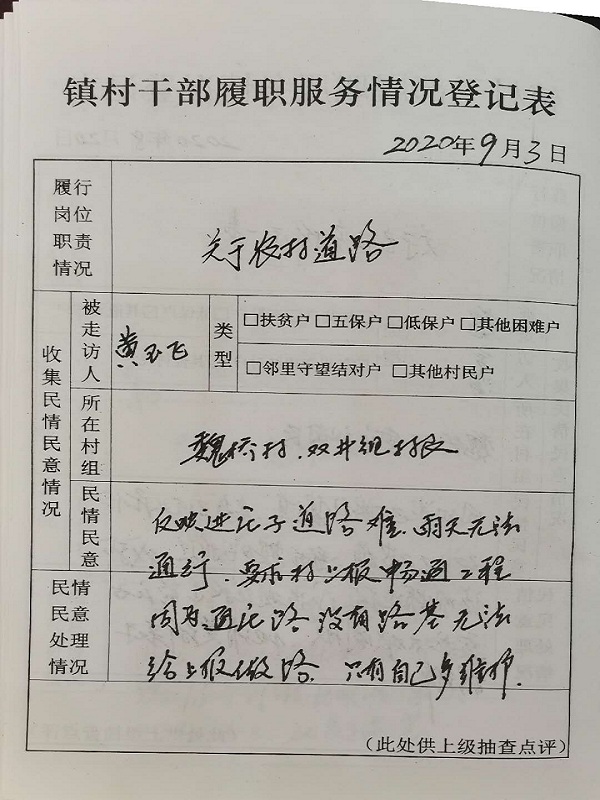 镇村干部履职服务情况登记表
2020年9月3日
履行岗位职责情况
关于农村道路
收集民情民意情况
被走访人
黄玉飞
类型
□扶贫户 □五保户 □低保户 □其他困难户
□邻里守望结对户 □其他村民户
所在村组
魏桥村、双井组村民
民情民意
反映进庄子道路难、雨天无法
通行、要求村上报畅通工程
民情民意处理情况
因为通庄路没有路基无法
给上报做路、只有自己多维护.
(此处供上级抽查点评)